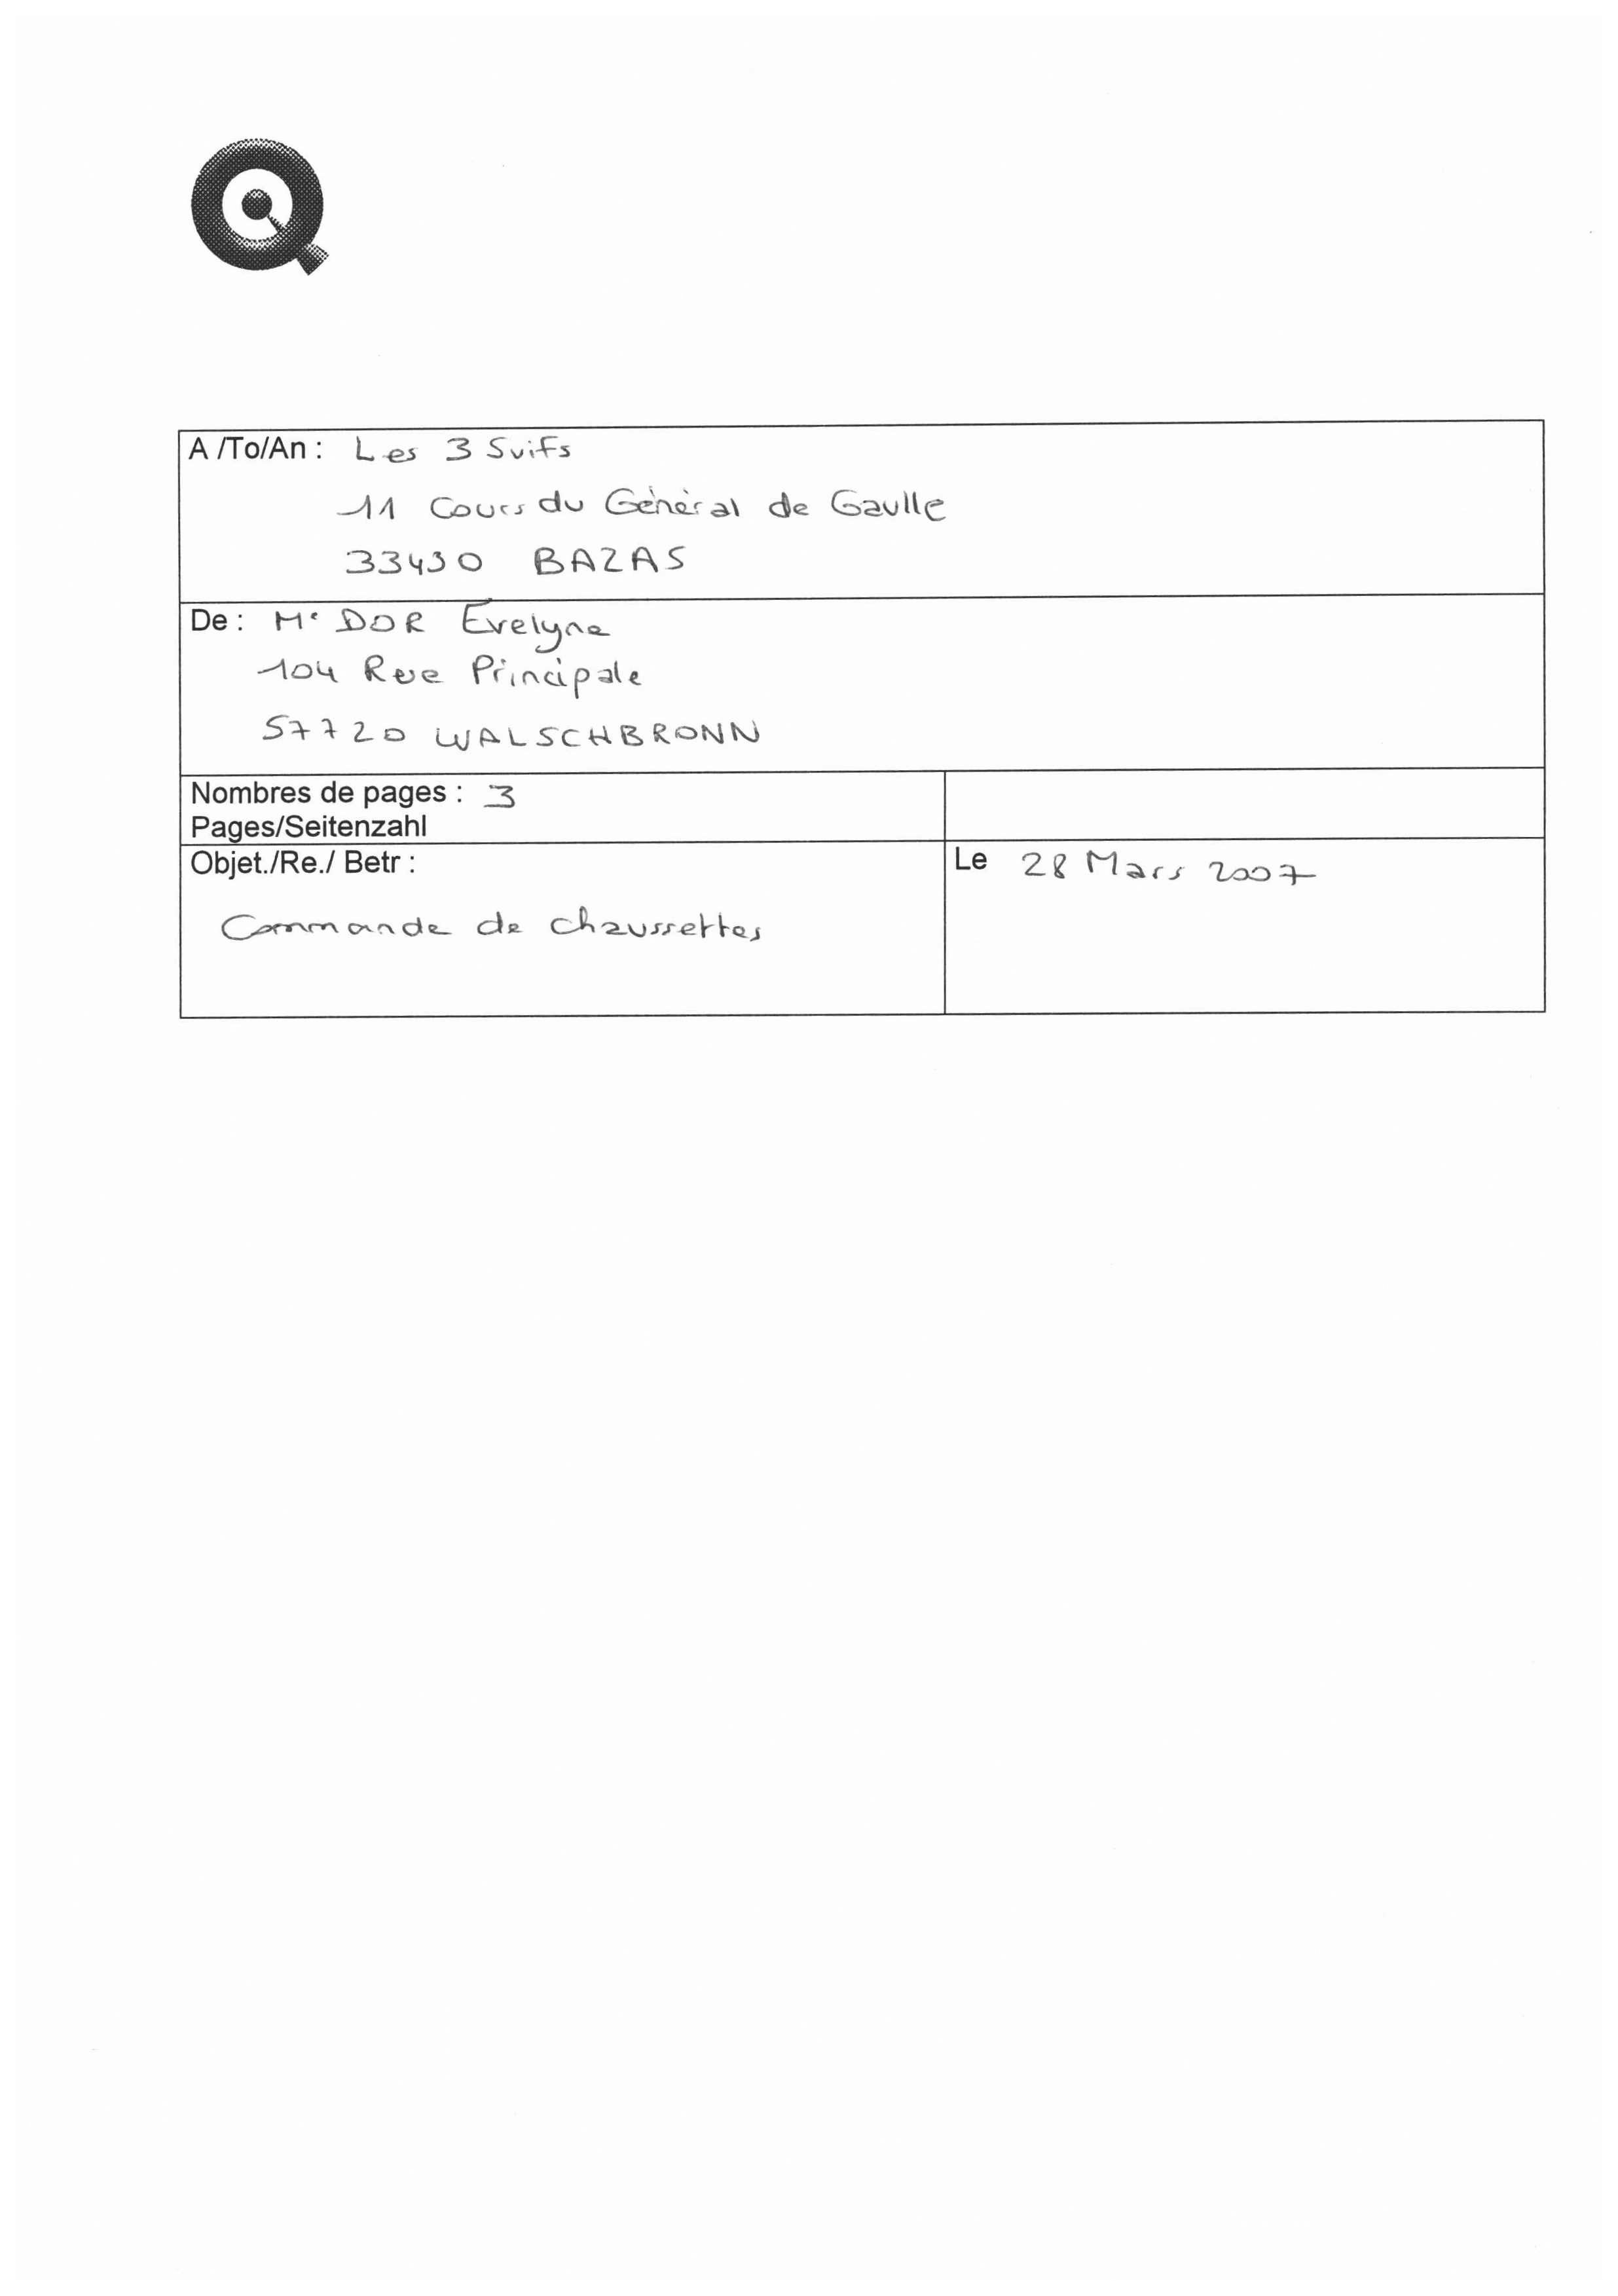 A /To/An : Les 3 Suifs
11 Cours du Général de Gaulle
33430 BAZAS
De : Me DOR Evelyne
104 Rue Principale
57720 WALSCHBRONN
Nombres de pages : 3
Pages/Seitenzahl
Objet./Re./ Betr :
Le 28 Mars 2007
Commande de chaussettes